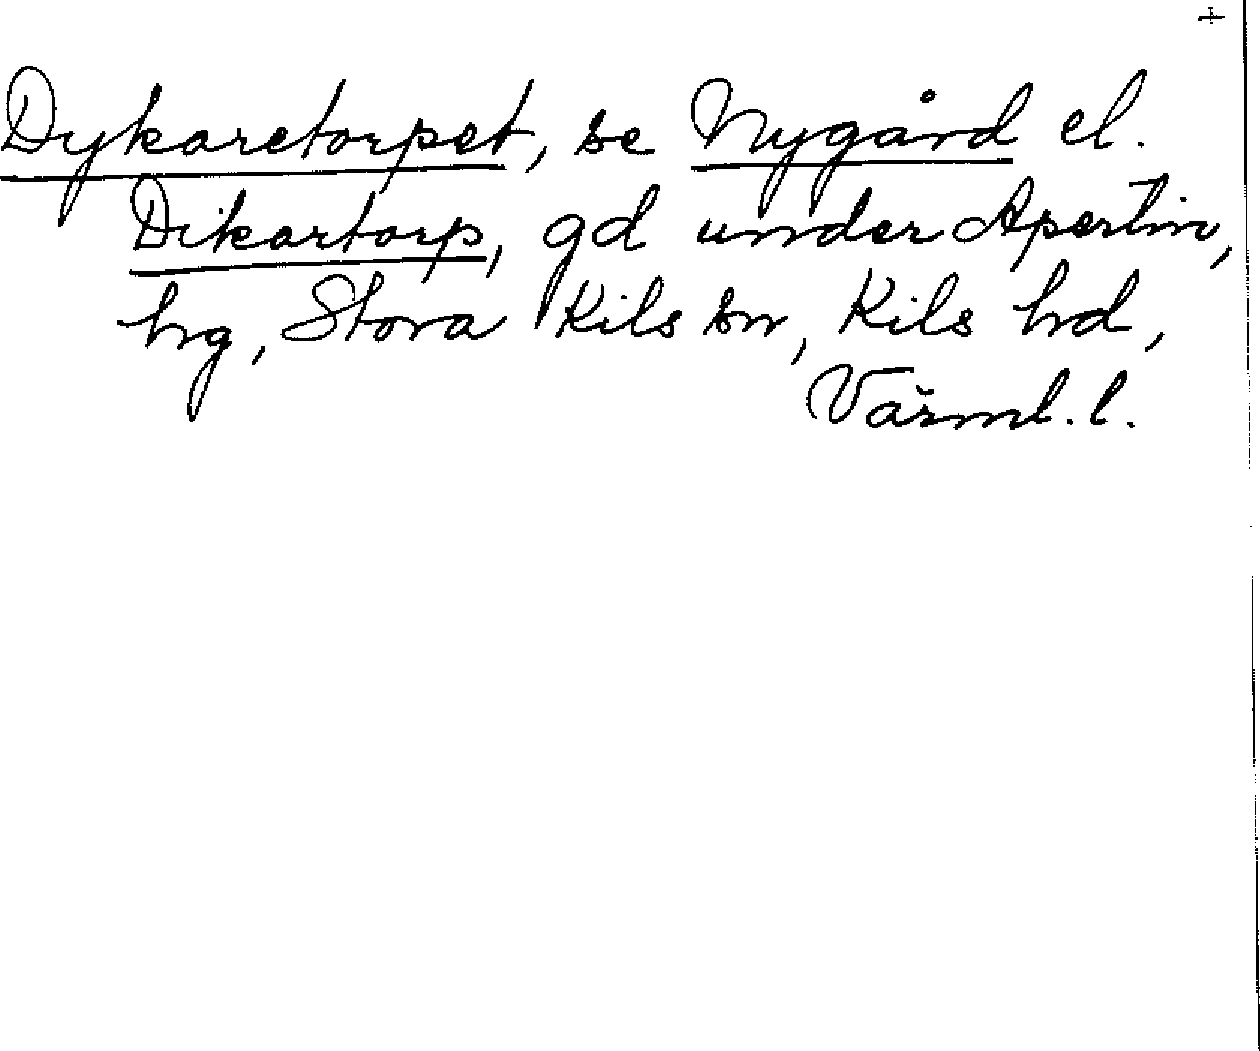 +
Dykaretorpet, se Nygård el.
Dikartorp, gd under Apertin,
hg, Stora Kils sn, Kils hd,
Värml. l.